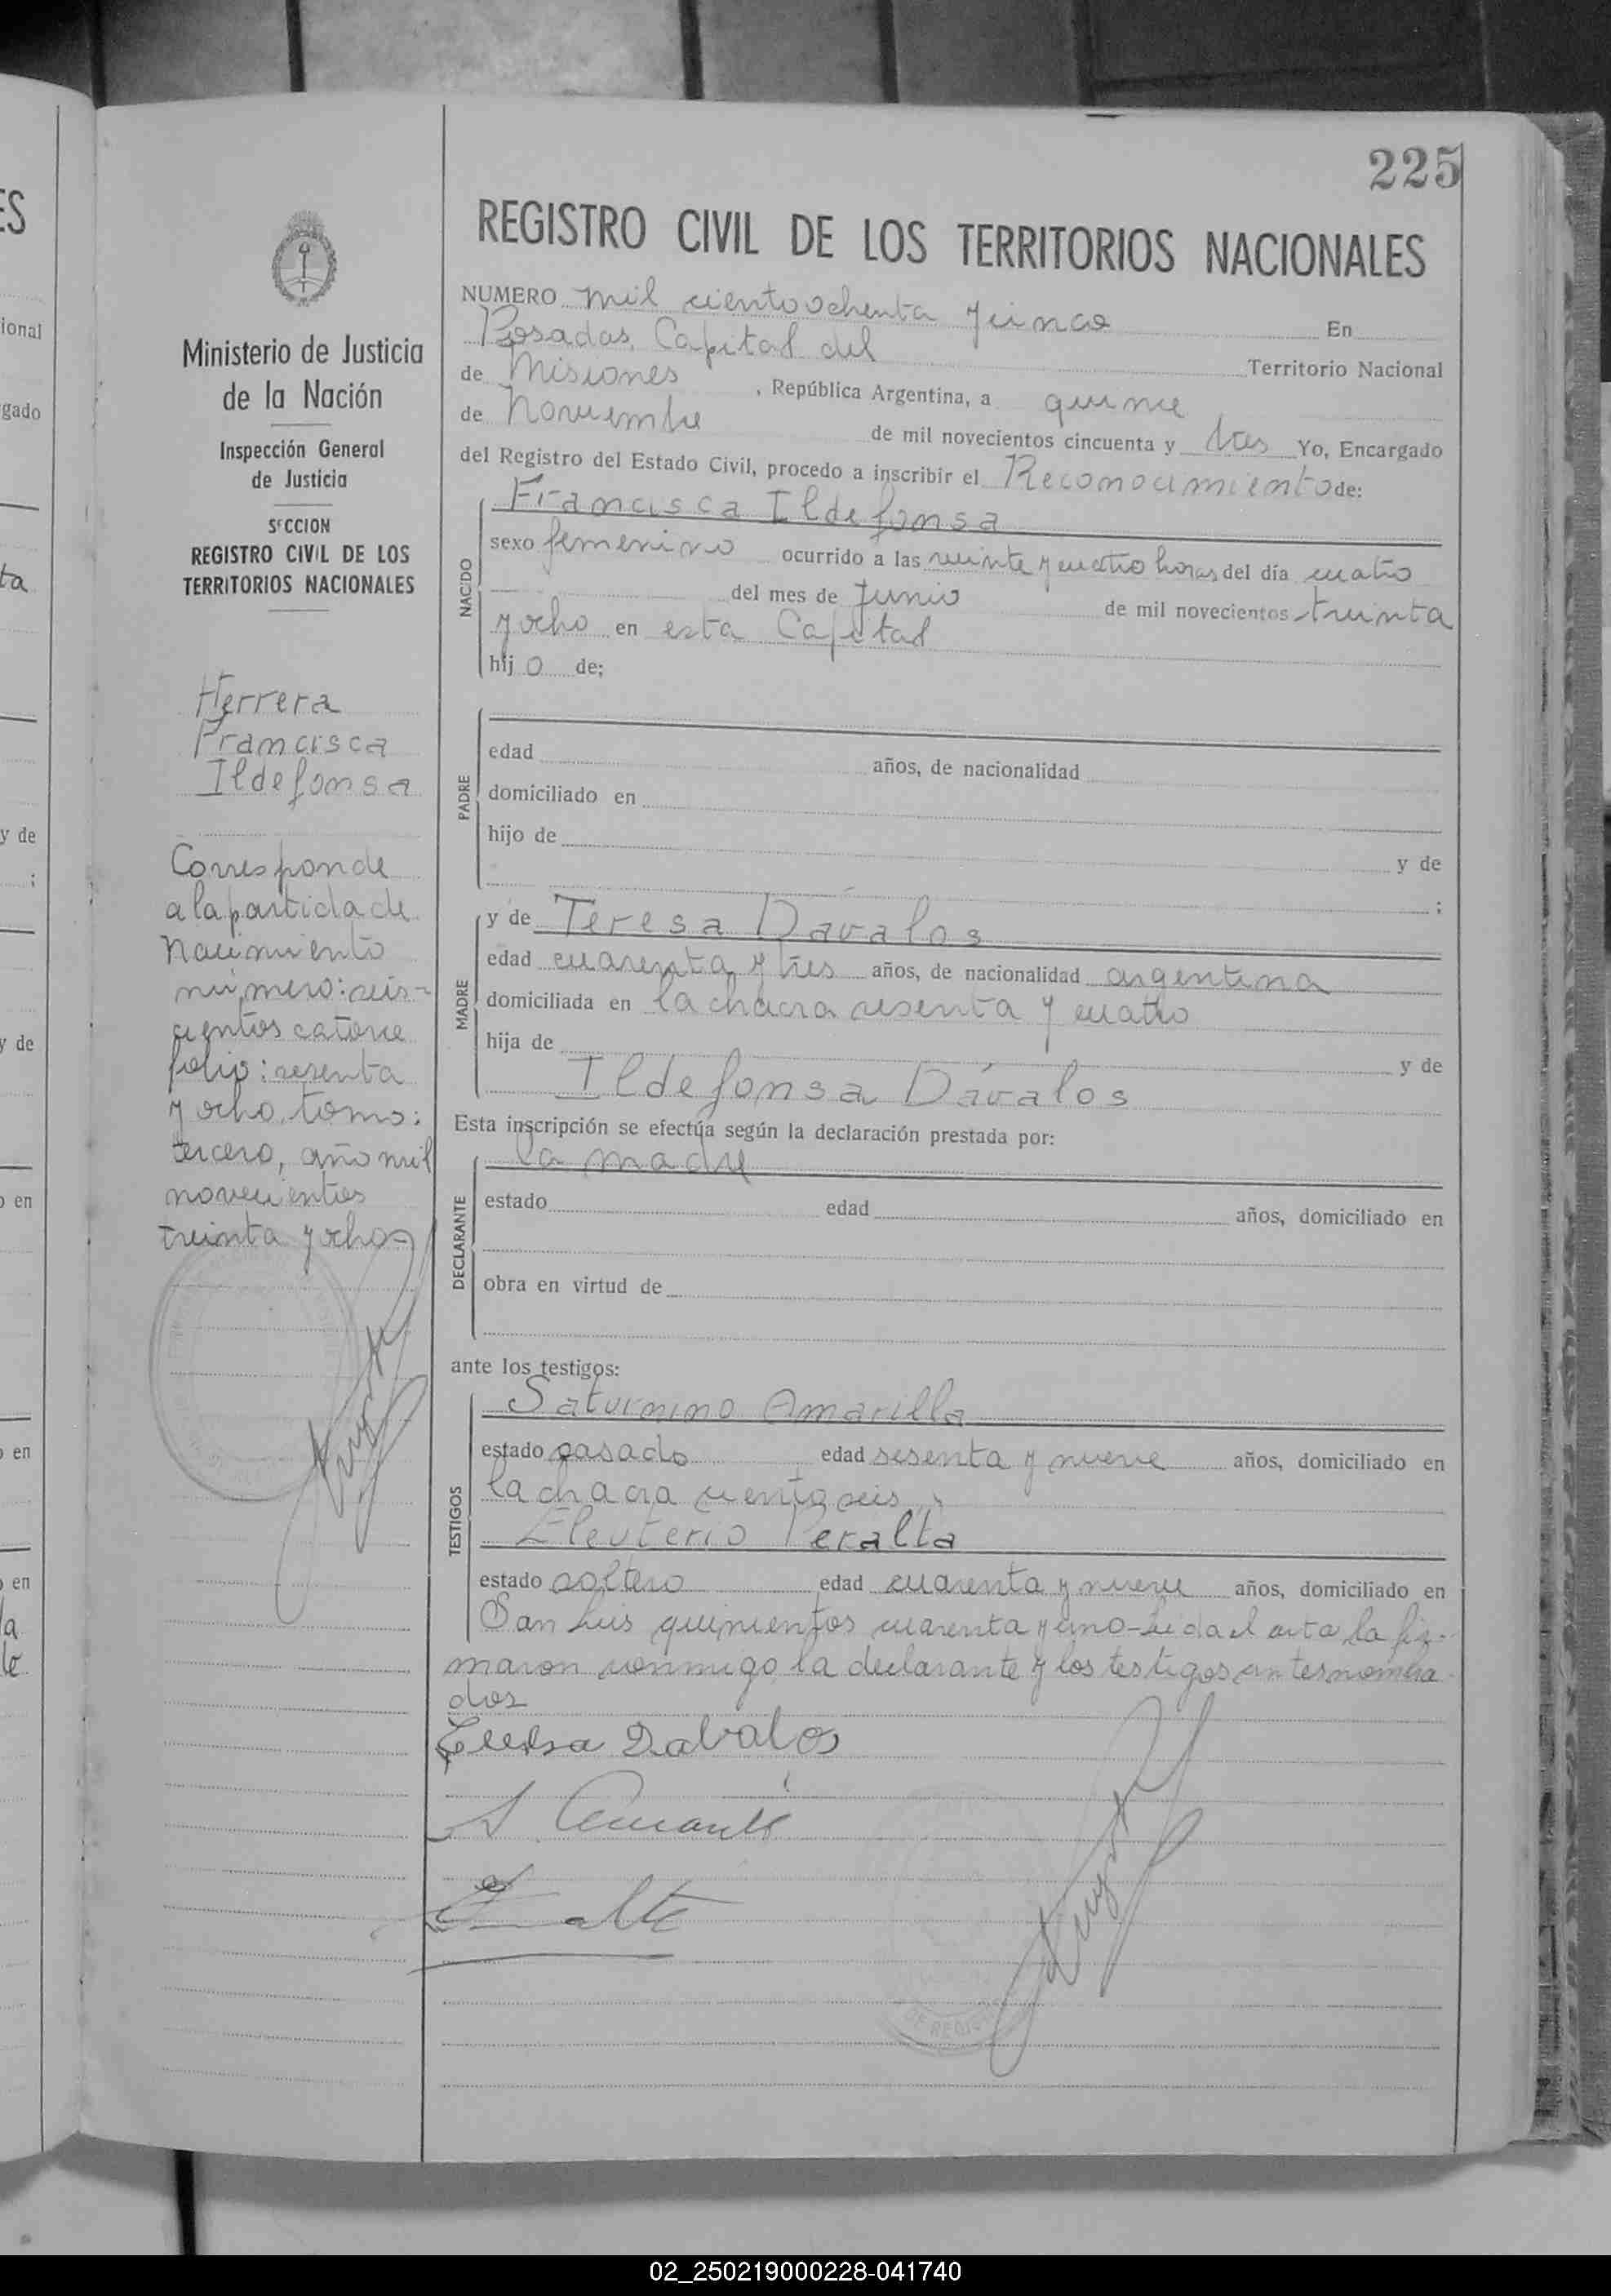 225
REGISTRO CIVIL DE LOS TERRITORIOS NACIONALES
Ministerio de Justicia
de la Nación
Inspección General
de Justicia
SECCION
REGISTRO CIVIL DE LOS
TERRITORIOS NACIONALES
Herrera
Francisca
Ildefonsa
Corresponde
a la partida de
Nacimiento
número: seis-
cientos catorce
folio: sesenta
y ocho, tomo:
tercero, año mil
novecientos
treinta y ocho
NUMERO mil ciento ochenta y cinco En
Posadas, Capital del Territorio Nacional
de Misiones, República Argentina, a quince
de Noviembre de mil novecientos cincuenta y tres Yo, Encargado
del Registro del Estado Civil, procedo a inscribir el Reconocimiento de:
Francisca Ildefonsa
NACIDO
sexo femenino ocurrido a las veinte y cuatro horas del día cuatro
del mes de Junio de mil novecientos treinta
y ocho en esta Capital
hij o de;
PADRE
edad años, de nacionalidad
domiciliado en
hijo de y de
;
MADRE
y de Teresa Dávalos
edad cuarenta y tres años, de nacionalidad argentina
domiciliada en la chacra sesenta y cuatro
hija de y de
Ildefonsa Dávalos
Esta inscripción se efectúa según la declaración prestada por:
la madre
DECLARANTE
estado edad años, domiciliado en
obra en virtud de
ante los testigos:
TESTIGOS
Saturnino Amarilla
estado casado edad sesenta y nueve años, domiciliado en
la chacra ciento seis,
Eleuterio Peralta
estado soltero edad cuarenta y nueve años, domiciliado en
San Luis quinientos cuarenta y uno - Leida el acta la fir-
maron conmigo la declarante y los testigos antes nombra
dos
Teresa Davalos
DE REGIS
ES
ional
gado
ta
y de
;
y de
o en
o en
o en
la
le
02_250219000228-041740